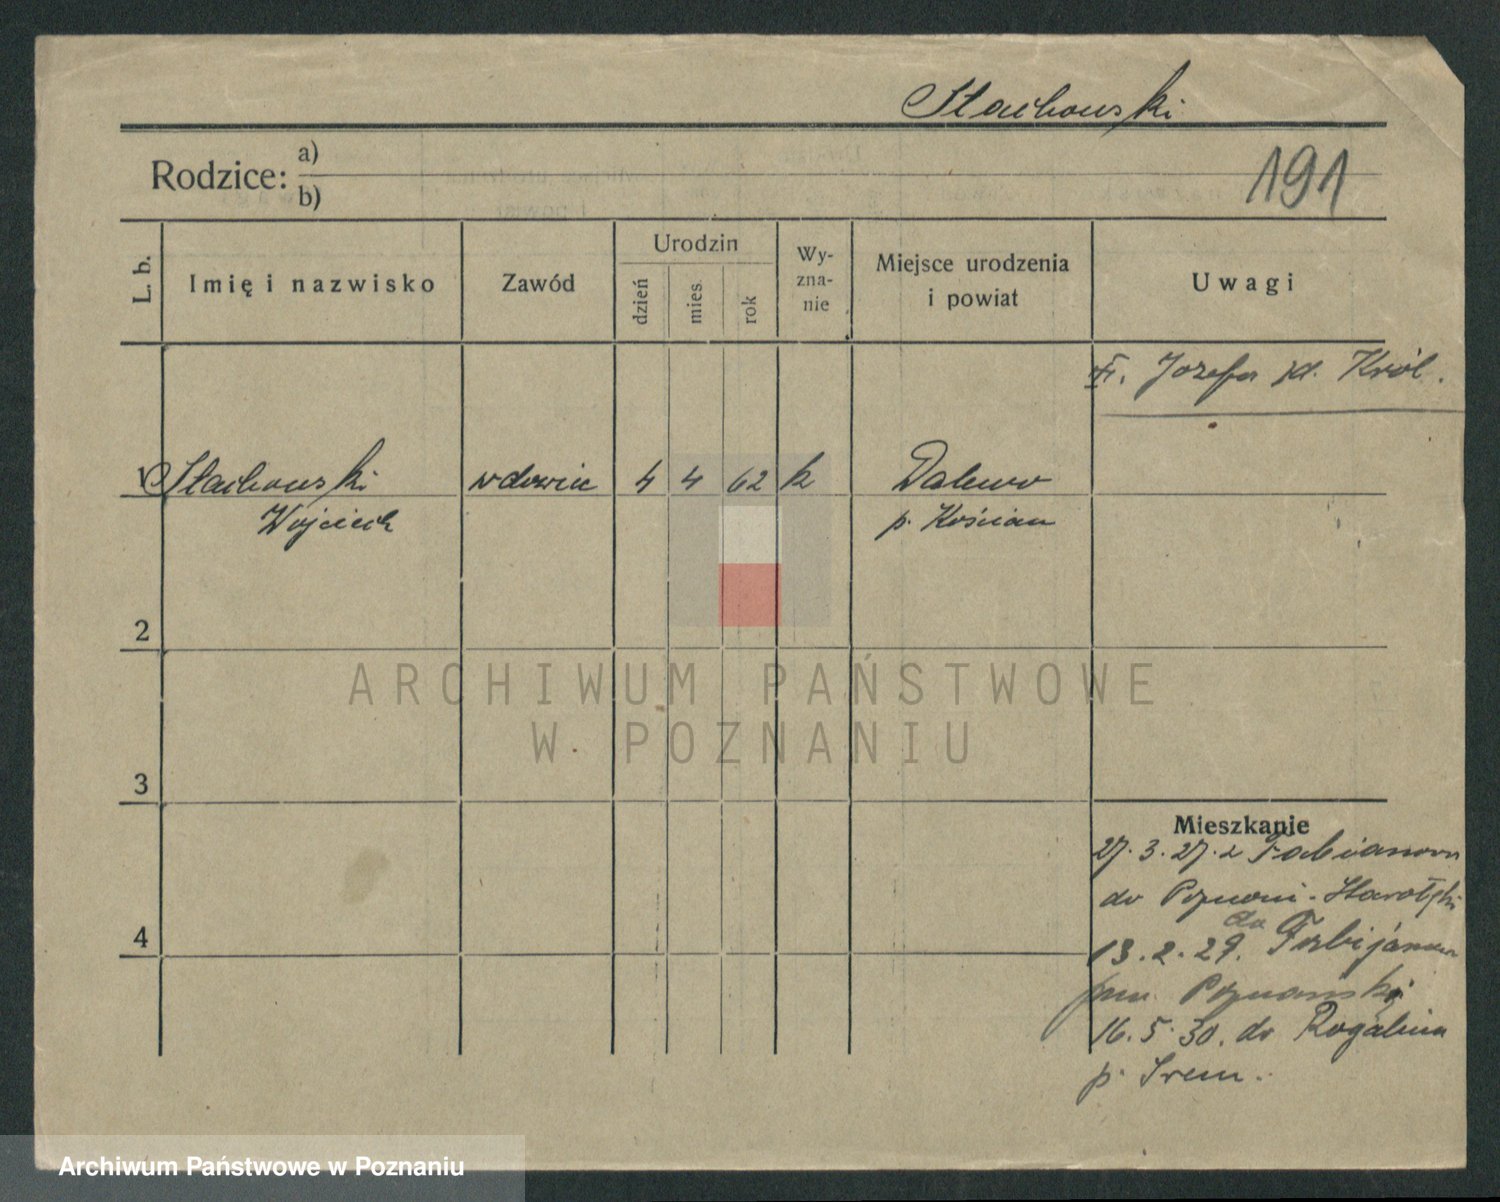 Stachowski
Rodzice: a)
b)
191
L. b.
Imię i nazwisko
Zawód
Urodzin
dzień
mies.
rok
Wy-
zna-
nie
Miejsce urodzenia
i powiat
Uwagi
Józefa Król.
1 Stachowski wdowiec 4 4 62 k Dalewo
Wojciech p. Kościan
2
3
4
Mieszkanie
27.3.27. z Fabianowa
do Poznani-Starołęki
13.2.29. do Fabijanowa
pow. Poznański
16.5.30. do Rogalina
p. Śrem.
ARCHIWUM PAŃSTWOWE
W POZNANIU
Archiwum Państwowe w Poznaniu